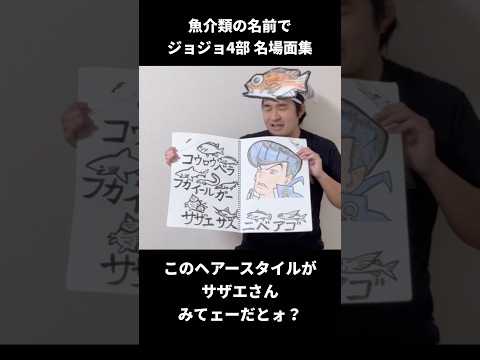 魚介類の名前で
ジョジョ4部 名場面集
コウロウベラ
フカイールガー
サザエ サヌ
ニベ アゴ
このヘアースタイルが
サザエさん
みてェーだとォ?